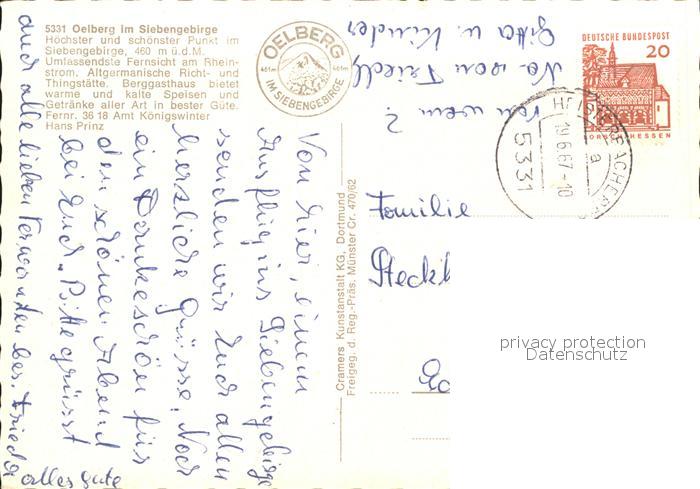 5331 Oelberg im Siebengebirge
Höchster und schönster Punkt im
Siebengebirge, 460 m ü.d.M.
Umfassendste Fernsicht am Rhein-
strom. Altgermanische Richt- und
Thingstätte. Berggasthaus bietet
warme und kalte Speisen und
Getränke aller Art in bester Güte.
Fernr. 36 18 Amt Königswinter
Hans Prinz
OELBERG
461m 461m
IM SIEBENGEBIRGE
Von hier, einem
Ausflug ins Siebengebirge
senden wir Euch allen
herzliche Grüsse. Noch
ein Dankeschön für
den schönen Abend
bei Euch. Bitte grüsst
auch alle lieben Verwandten bes. Friedel
alles gute
von wem?
Na von Friedl,
Gitta u. Kinder
Cramers Kunstanstalt KG, Dortmund
Freigeg. d. Reg.-Präs. Münster Cr. 470/62
DEUTSCHE BUNDESPOST
20
5331
19.6.67-10
a
Familie
Steckl
privacy protection
Datenschutz